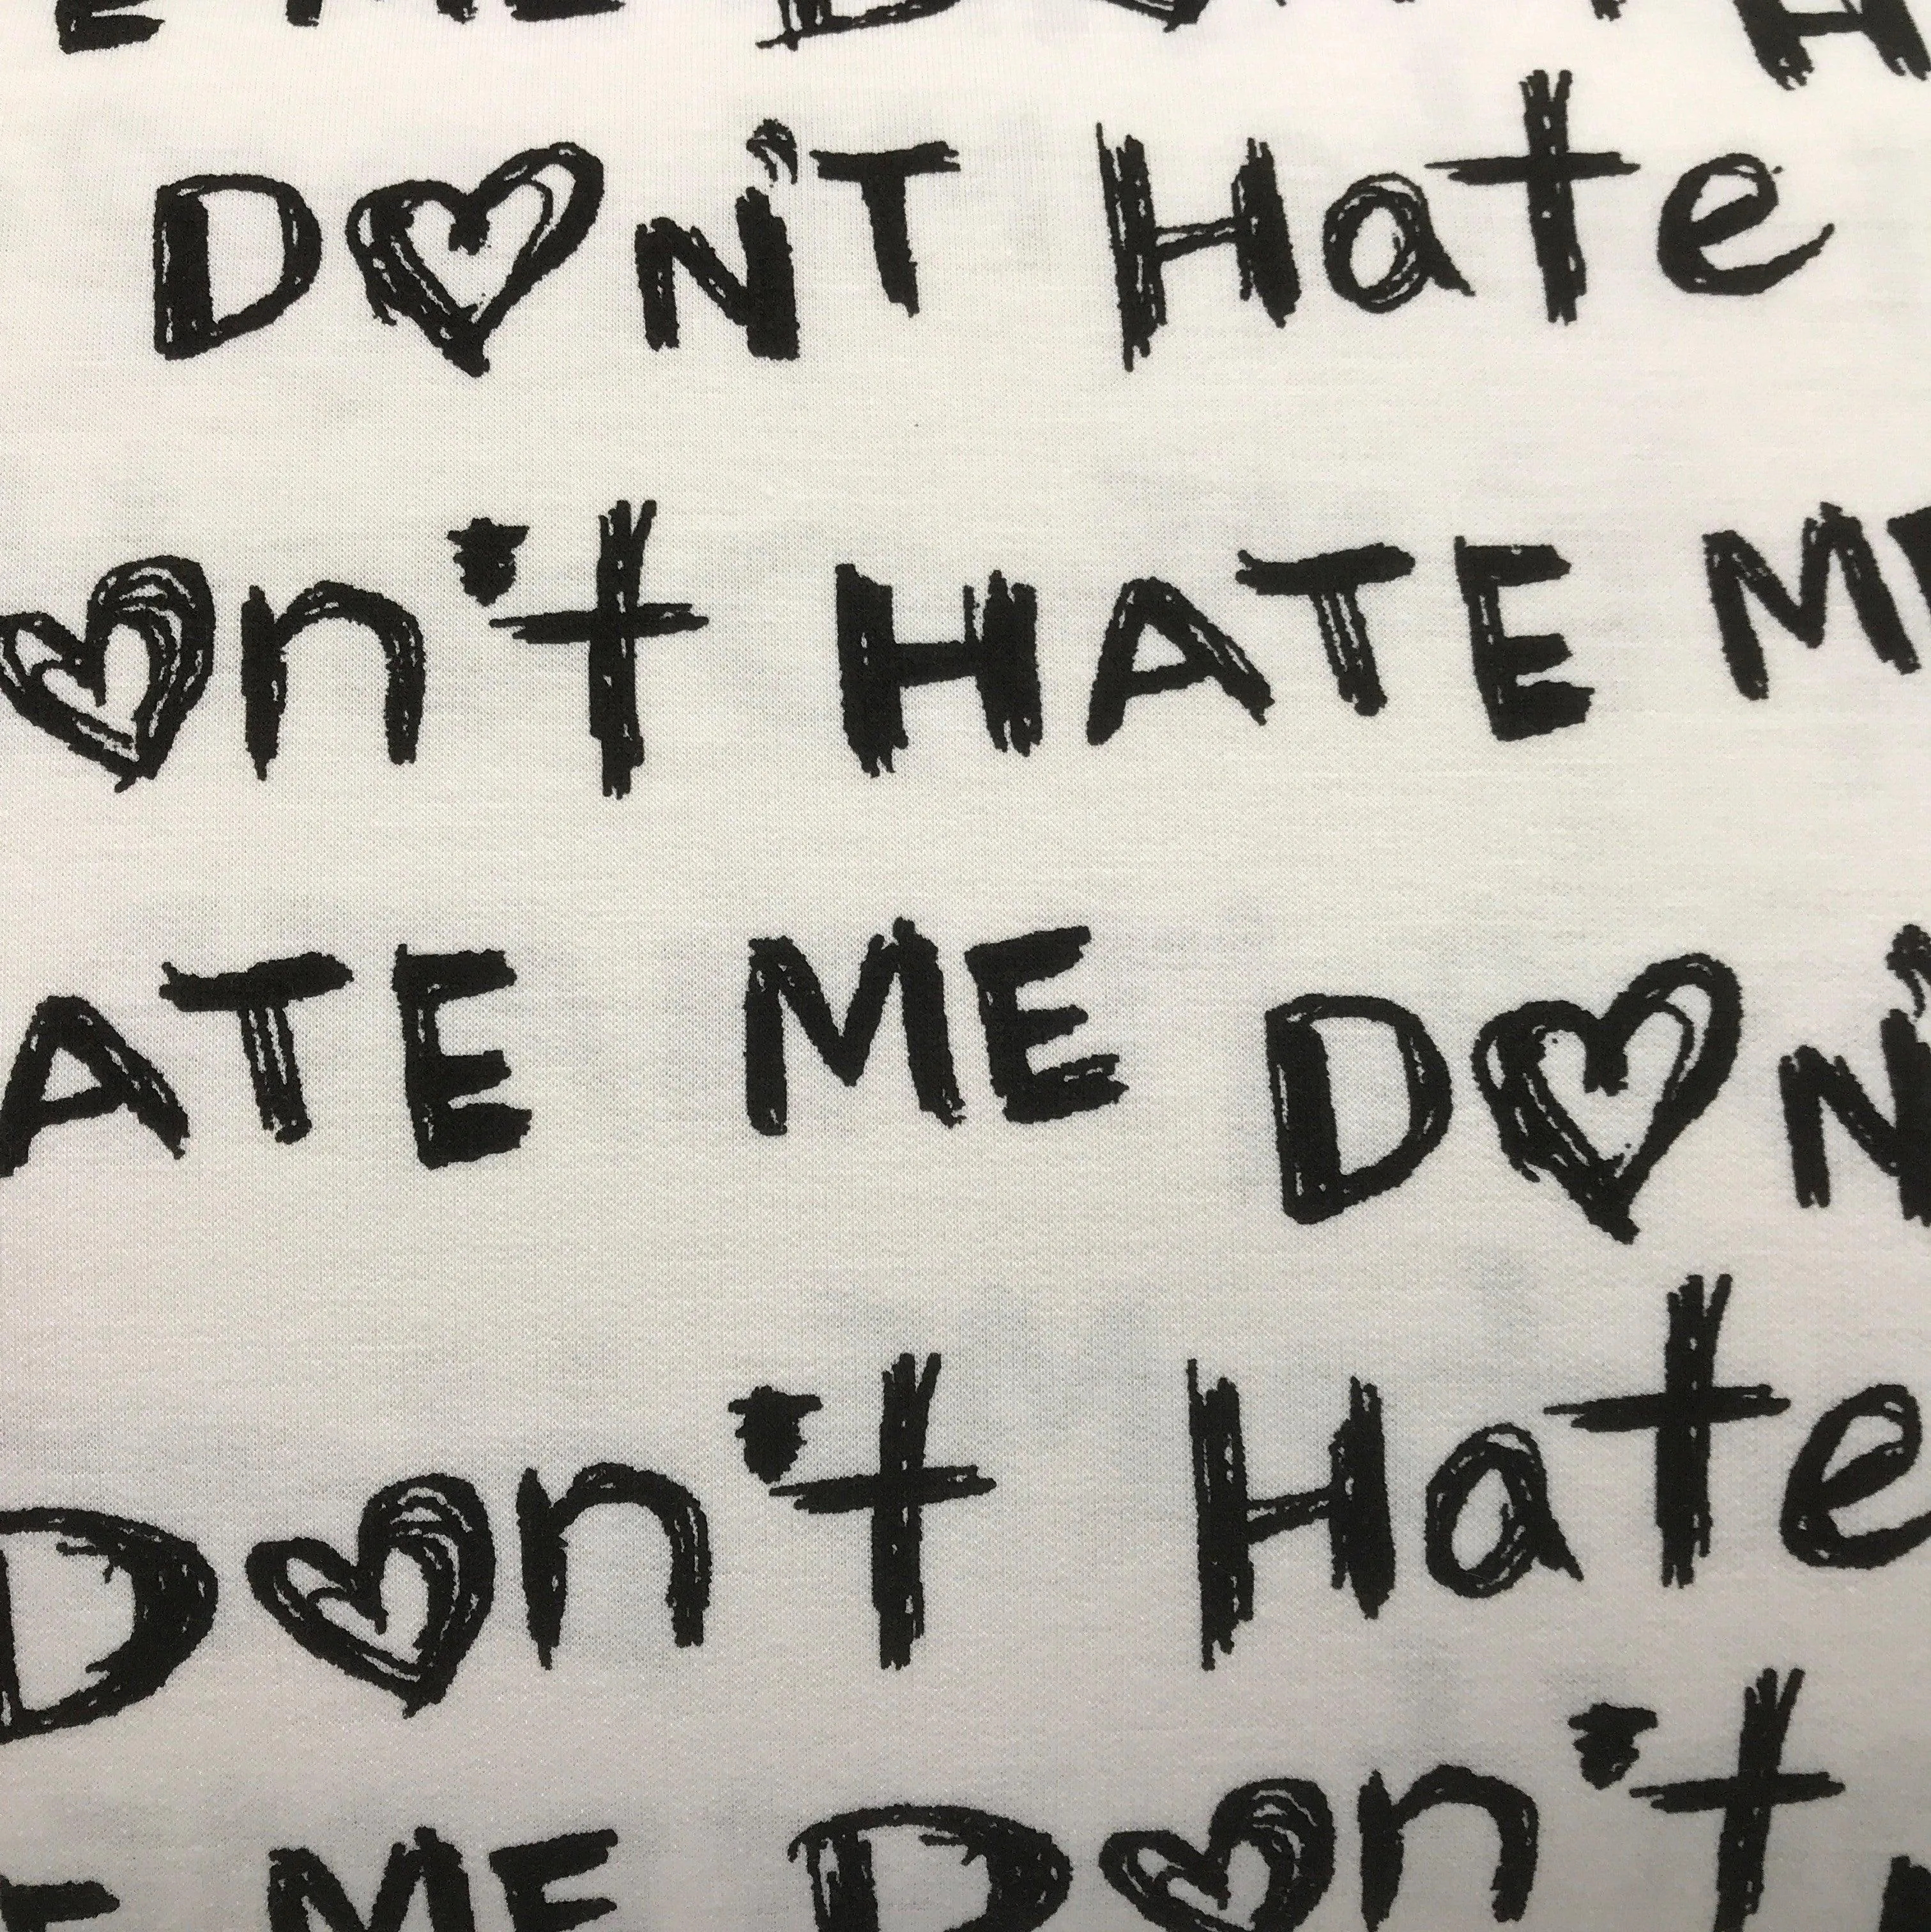 E ME D
DON'T Hate
on't HATE ME
ATE ME DON'
Don't Hate
E ME Don't